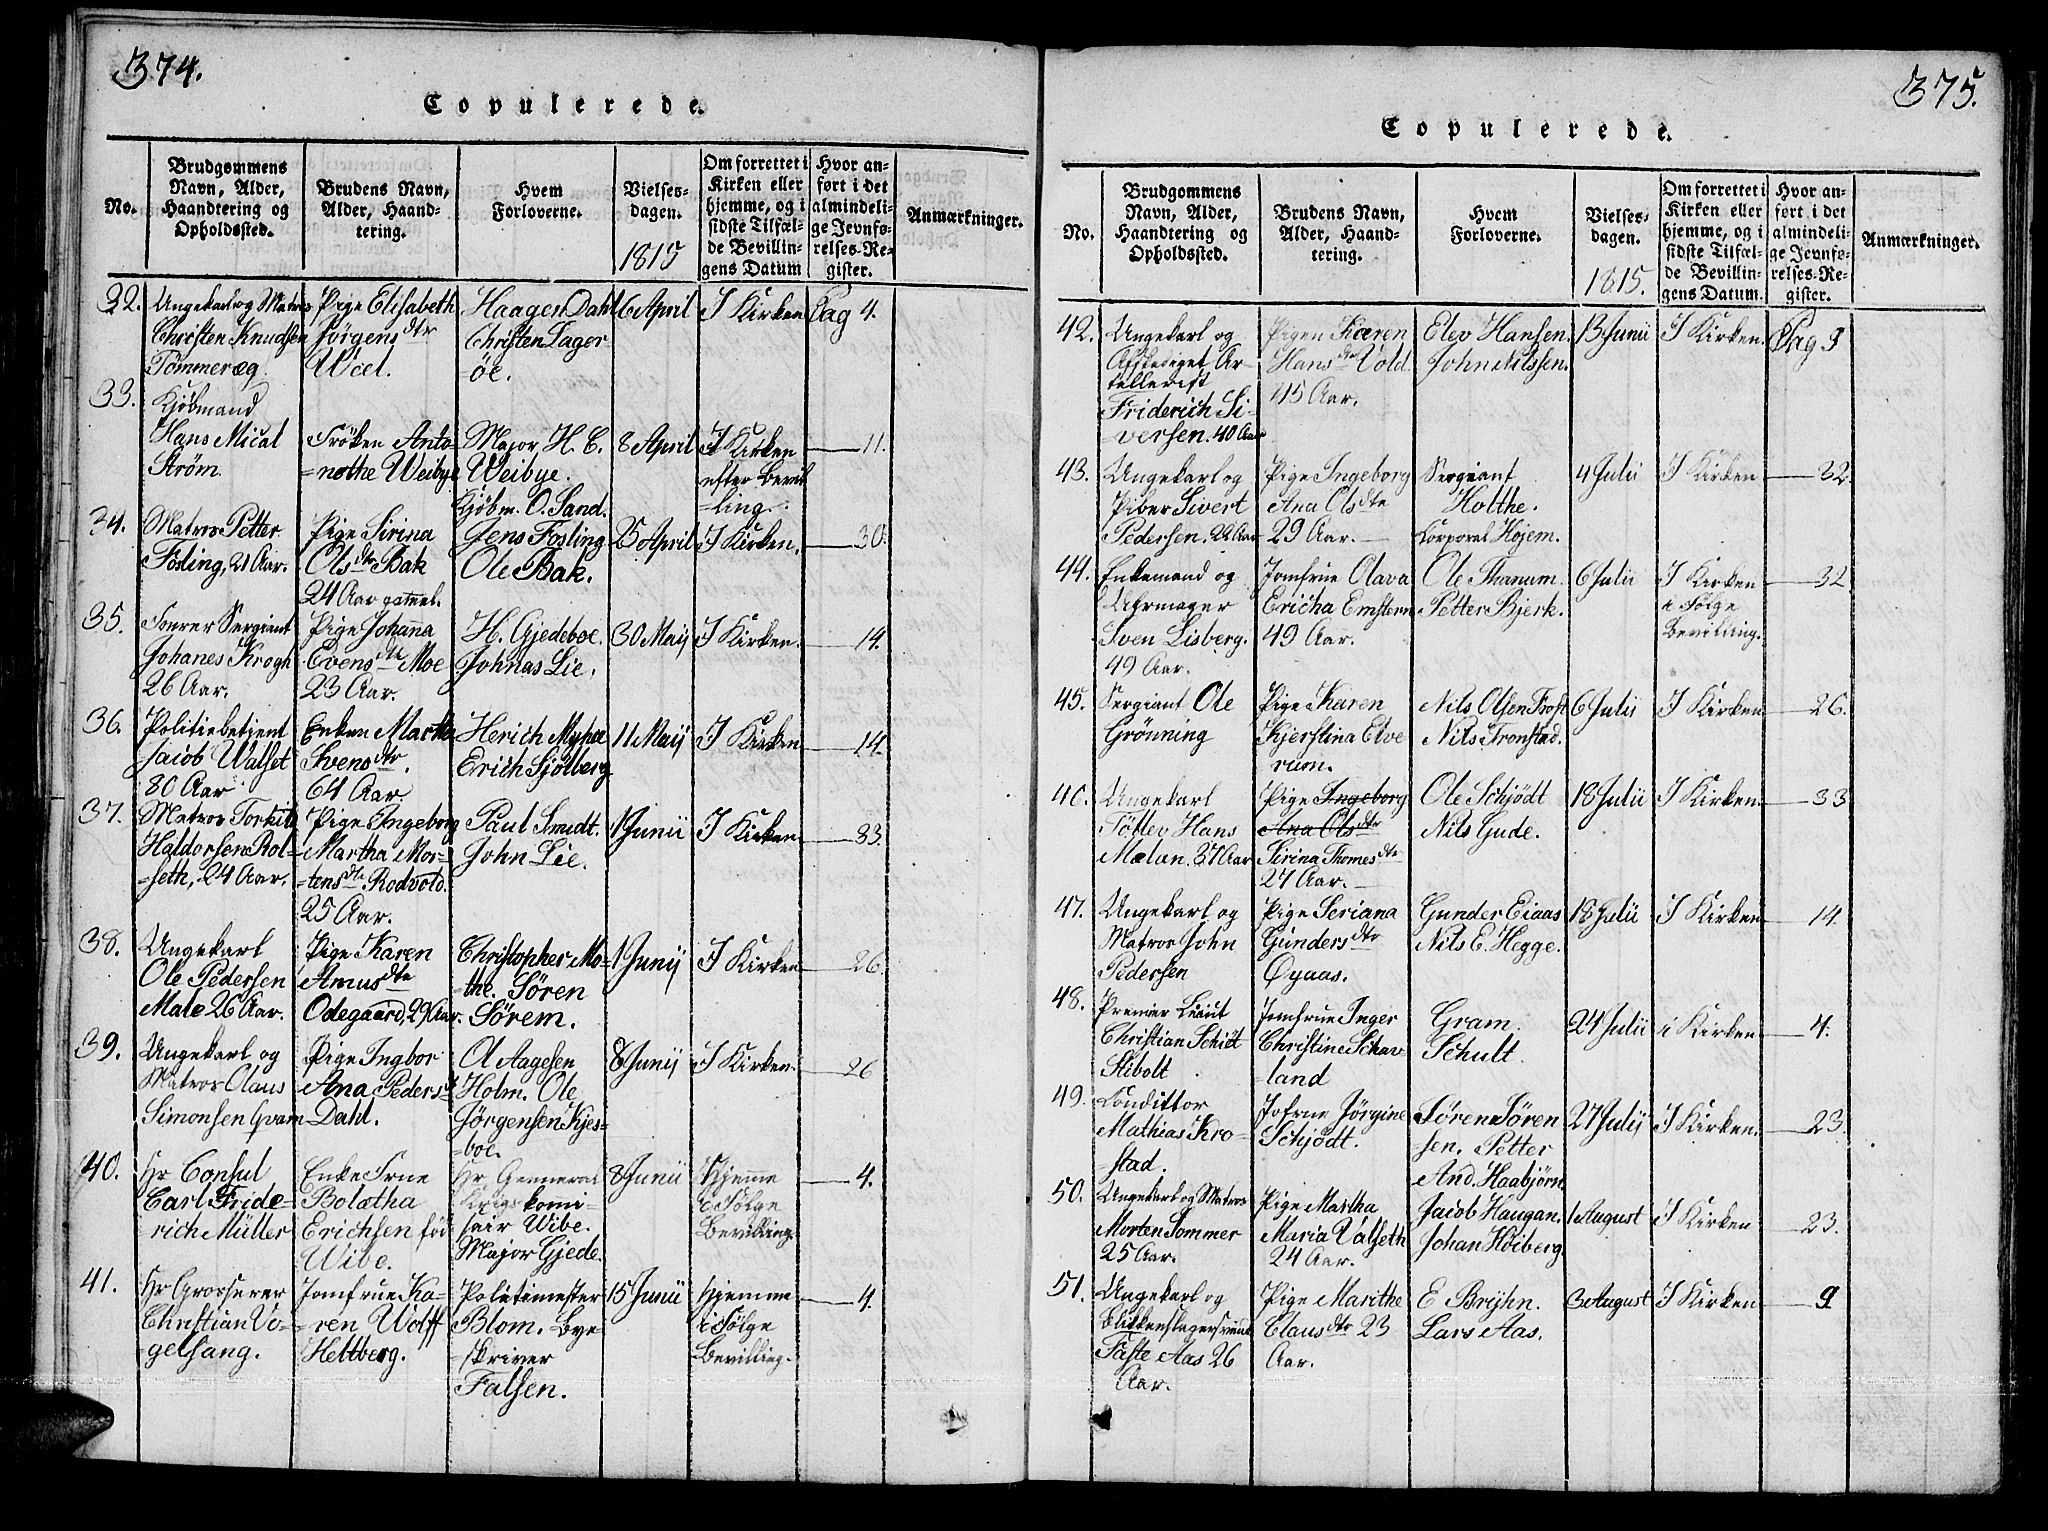 374.
Copulerede.
No.
Brudgommens
Navn, Alder,
Haandtering og
Opholdssted.
Brudens Navn,
Alder, Haand-
tering.
Hvem
Forloverne.
Vielses-
dagen.
1815
Om forrettet i
Kirken eller
hjemme, og i
sidste Tilfæl-
de Bevillin-
gens Datum
Hvor an-
ført i det
almindeli-
ge Jevnfø-
relses-Re-
gister.
Anmærkninger.
32.
Ungekarl og Matros
Christen Knudsen
Tömmeræg.
Pige Elisabeth
Jörgensdtr
Wiel.
Haagen Dahl
Christen Lager-
öe.
6 April
I Kirken
Pag 4.
33.
Kjöbmand
Hans Mical
Ström.
Fröken Anto-
=nothe Weibye
Major H. C.
Weibye.
Kjöbm. O. Sand.
8 April
I Kirken
efter Bevil
=ling.
11.
34.
Matros Petter
Fösling, 21 Aar.
Pige Sirina
Olsdtr Bak
24 Aar gamel.
Jens Fosling
Ole Bak.
25 April
I Kirken.
30.
35.
Fourer Sergiant
Johanes Krogh
26 Aar.
Pige Johanna
Evensdtr Moe
23 Aar.
H. Gjedeboe.
Johnas Lie.
30 Maij
I Kirken.
14.
36.
Politiebetjent
Jacob Valset
80 Aar
Enken Martha
Svensdtr.
64 Aar
Herich Myhre
Erich Sjölberg
11 Maij
I Kirken
14.
37.
Matros Torkild
Haldorsen Rol-
=seth, 24 Aar.
Pige Ingeborg
Martha Mor-
=tensdtr Rodvold.
25 Aar.
Paul Smidt.
John Lie.
1 Junii
I Kirken
33.
38.
Ungekarl
Ole Pedersen
Male 26 Aar.
Pige Karen
Amusdtr
Odegaard, 29 Aar.
Christopher Mo-
=the. Sören
Sörem.
1 Junij
I Kirken
26.
39.
Ungekarl og
Matros Claus
Simonsen Gram
Pige Ingbor
Ana Pedersd
Dahl.
Ol Aagesen
Holm. Ole
Jörgensen Kjes-
=boe.
8 Junij
I Kirken.
26
40.
Hr Consul
Carl Fride-
=rich Müller
Enke Frue
Bolætha
Erichsen föd
Wibe.
Hr Genneral
Krigskomi-
sair Wibe.
Major Gjede.
8 Junii
Hjemme
i Fölge
Bevilling.
4.
41.
Hr Grosserer
Christian Vo-
=gelsang.
Jomfrue Ka-
ren Wolff
Heltberg.
Politimester
Blom. Bye
=skriver
Falsen.
15 Junii
Hjemme
i Fölge
Bevilling.
4.
375.
Copulerede.
No.
Brudgommens
Navn, Alder,
Haandtering og
Opholdssted.
Brudens Navn,
Alder, Haand-
tering.
Hvem
Forloverne.
Vielses-
dagen.
1815.
Om forrettet i
Kirken eller
hjemme, og i
sidste Tilfæl-
de Bevillin-
gens Datum.
Hvor an-
ført i det
almindeli-
ge Jevnfø-
relses-Re-
gister.
Anmærkninger.
42.
Ungekarl og
Afskediget Ar-
tellerist
Friderich Si-
=versen. 40 Aar
Pigen Karen
Hansdtr Vold.
45 Aar.
Elev Hansen.
John Nilssen.
13 Junii
I Kirken.
Pag 3
43.
Ungekarl og
Piber Sivert
Pedersen. 22 Aar
Pige Ingeborg
Ana Olsdtr
29 Aar.
Sergiant
Holthe.
Corporal Höjem.
4 Julii
I Kirken
32.
44.
Enkemand og
Uhrmager
Sven Lisberg.
49 Aar.
Jomfrue Olava
Ericha Emstern
49 Aar.
Ole Thanum.
Petter Bjerk.
6 Julii
I Kirken
i Fölge
Bevilling.
32
45.
Sergiant Ole
Grönning
Pige Karen
Kjerstina Elve
rum.
Nils Olsen Frost
Nils Tronstad.
6 Julii
I Kirken
26.
46.
Ungekarl
Töllev Hans
Mælan. 37 Aar
Pige Ingeborg
Ana Olsdtr
Sirina Thomesdtr
27 Aar.
Ole Schjödt
Nils Gude.
18 Julii
I Kirken
33
47.
Ungekarl og
Matros John
Pedersen
Pige Seriana
Gundersdtr
Oyaas.
Gunder Eiaas
Nils E. Hegge.
18 Julii
I Kirken
14.
48.
Premier Leiut
Christian Schiöt
Stibolt
Jomfrue Inger
Christine Schav
=land
Gram.
Schult.
24 Julii
i Kirken
4.
49.
Condittor
Mathias Kro-
=stad.
Jofrue Jörgine
Schjödt.
Sören Sören
sen. Petter
And. Haabjörn.
27 Julij
I Kirken.
23.
50.
Ungekarl og Matros
Morten Sommer
25 Aar.
Pige Martha
Maria Valseth
24 Aar.
Jacob Haugan.
Johan Höiberg
1 August
I Kirken
23.
51.
Ungekarl og
Blikkenslagersvend
Faste Aas 26
Aar.
Pige Marithe
Clausdtr 23
Aar.
E Brijhn.
Lars Aas.
3 August
I Kirken
9